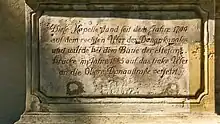 Diese Kapelle stand seit dem Jahre 17
auf dem rechten Ufer des Donaukanales
und wurde bei dem Baue der
brücke im Jahre 18 auf das linke Ufer
an die Obere Donaustraße versetzt.